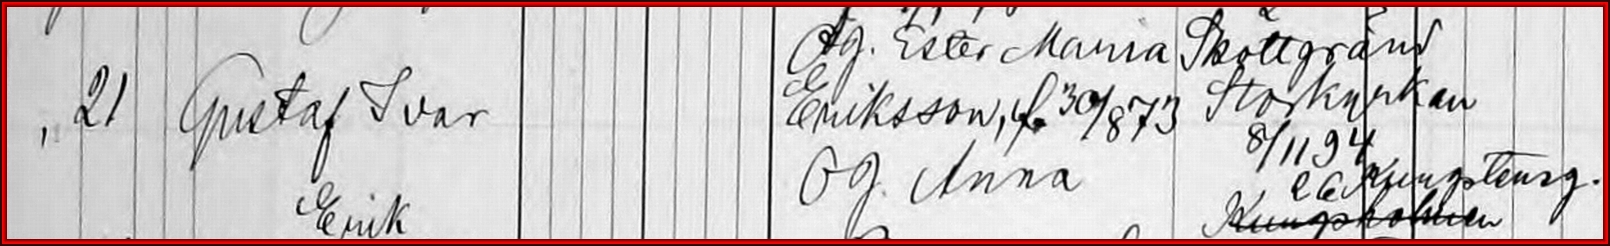 Og. Ester Maria Skottgränd
„ 21 Gustaf Ivar Eriksson, f. 30/8 73 Storkyrkan
8/11 94
Og. Anna 26 Kungstensg.
Erik Kungsholmen